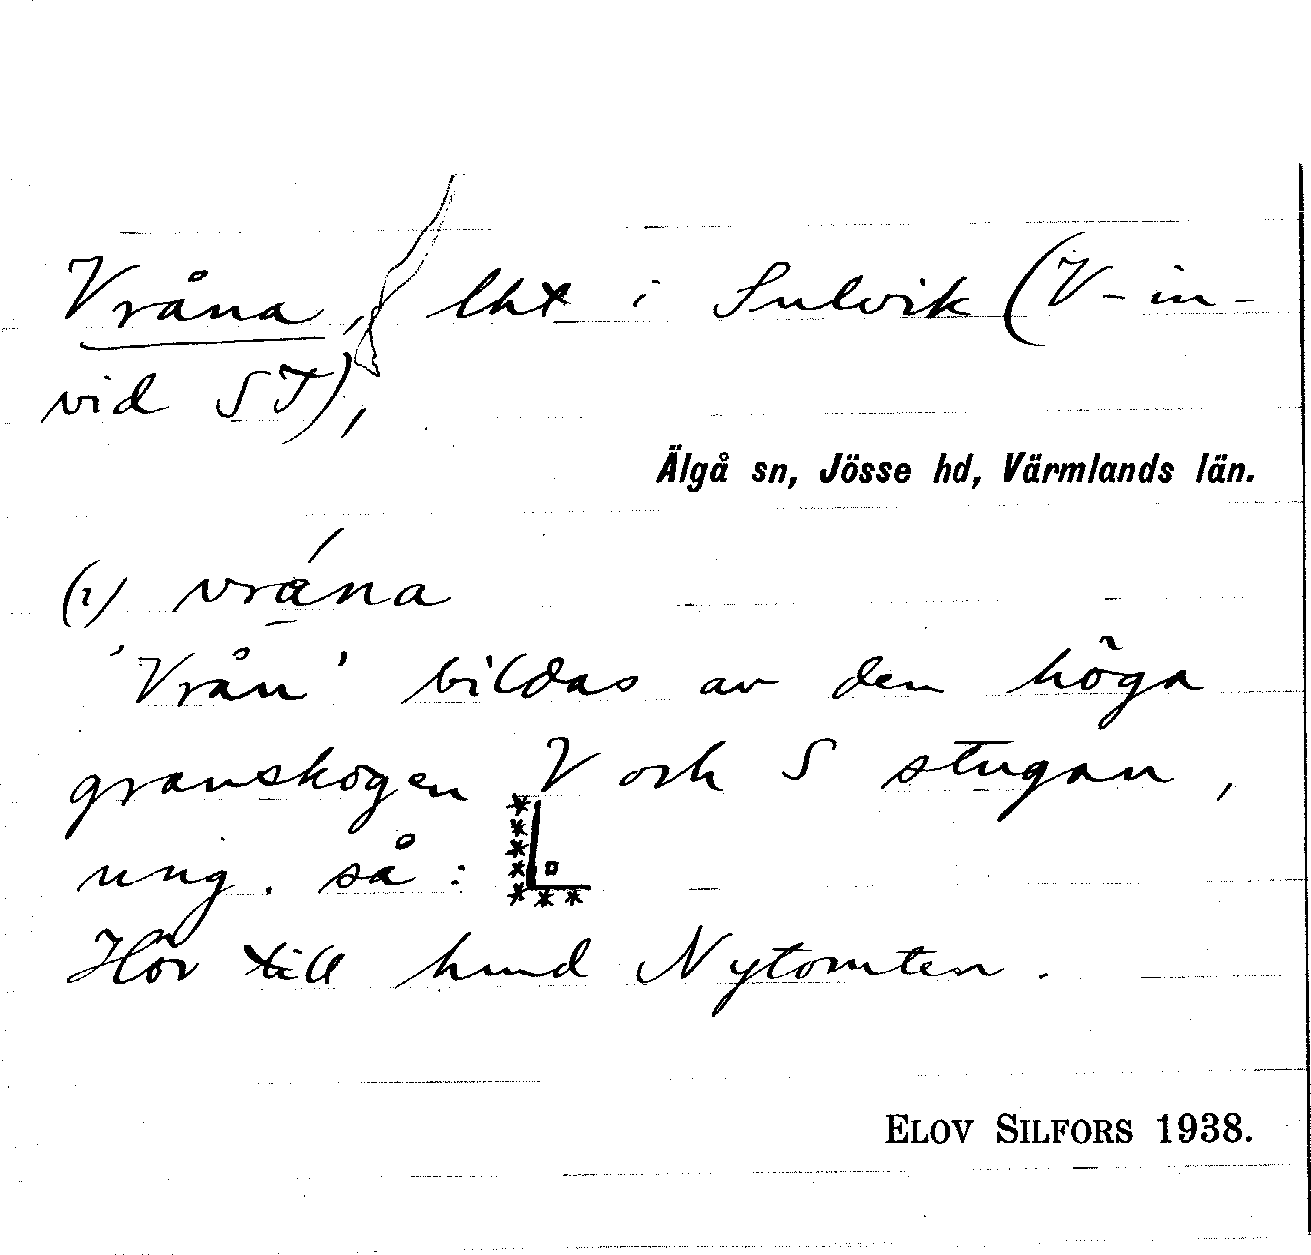 Vråna, lht i Sulvik (V-in-
vid ST),
Älgå sn, Jösse hd, Värmlands län.
(1) vrána
'Vrån' bildas av den höga
granskogen V och S stugan,
ung. så:
Hör till hmd Nytomten.
ELOV SILFORS 1938.